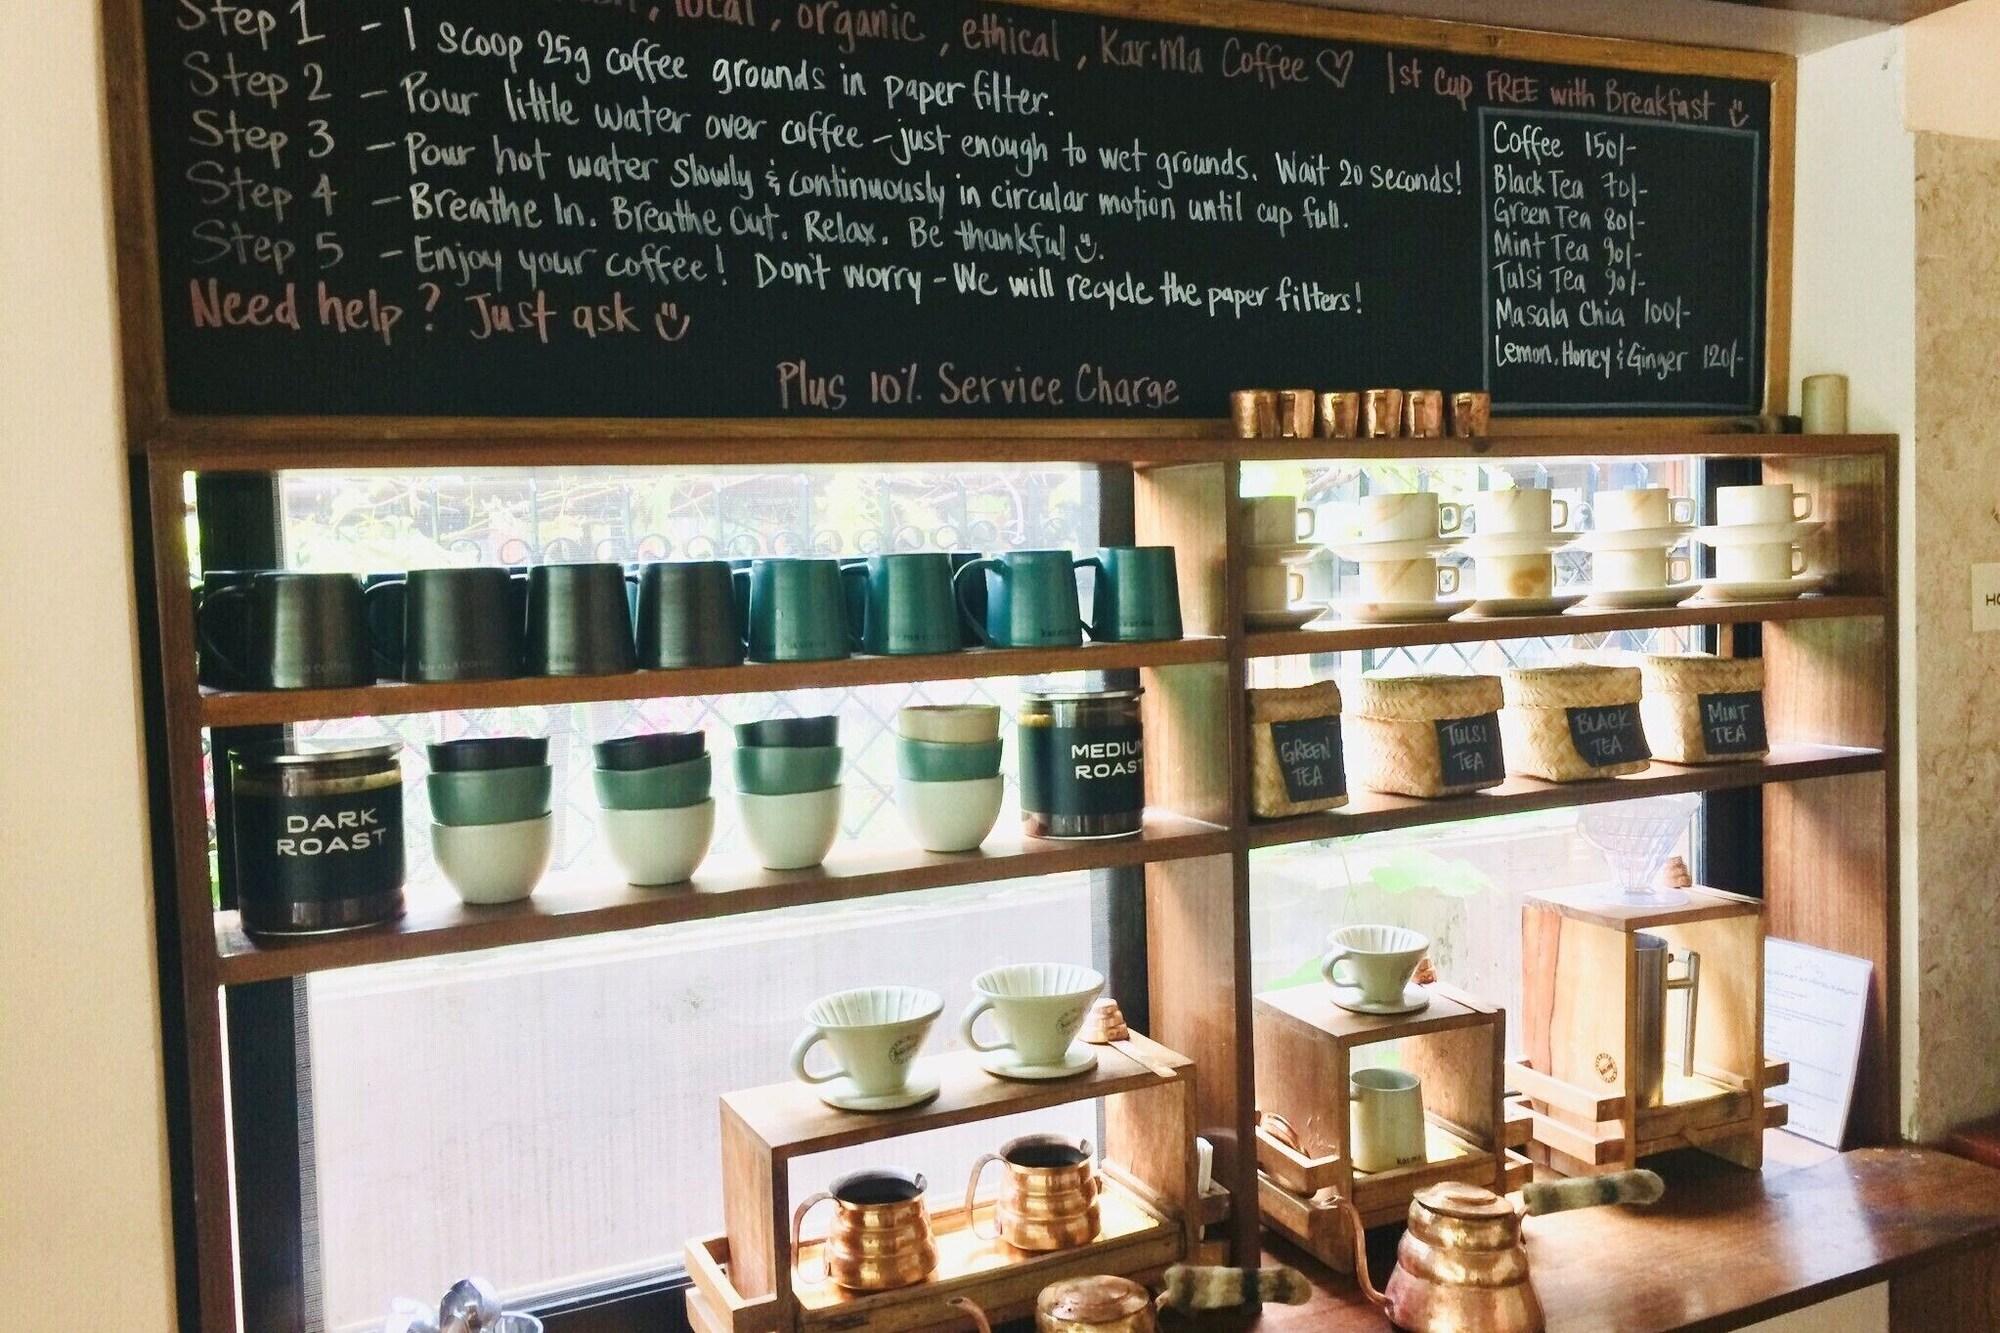 , local, organic, ethical, Kar.Ma Coffee ♡ 1st cup FREE with Breakfast
Step 1 - 1 scoop 25g coffee grounds in paper filter.
Step 2 - Pour little water over coffee - just enough to wet grounds. Wait 20 seconds!
Step 3 - Pour hot water slowly & continuously in circular motion until cup full.
Step 4 - Breathe In. Breathe Out. Relax. Be thankful.
Step 5 - Enjoy your coffee! Don't worry - We will recycle the paper filters!
Need help? Just ask
Plus 10% Service Charge
Coffee 150/-
Black Tea 70/-
Green Tea 80/-
Mint Tea 90/-
Tulsi Tea 90/-
Masala Chia 100/-
Lemon, Honey & Ginger 120/-
DARK
ROAST
MEDIUM
ROAST
GREEN
TEA
TULSI
TEA
BLACK
TEA
MINT
TEA